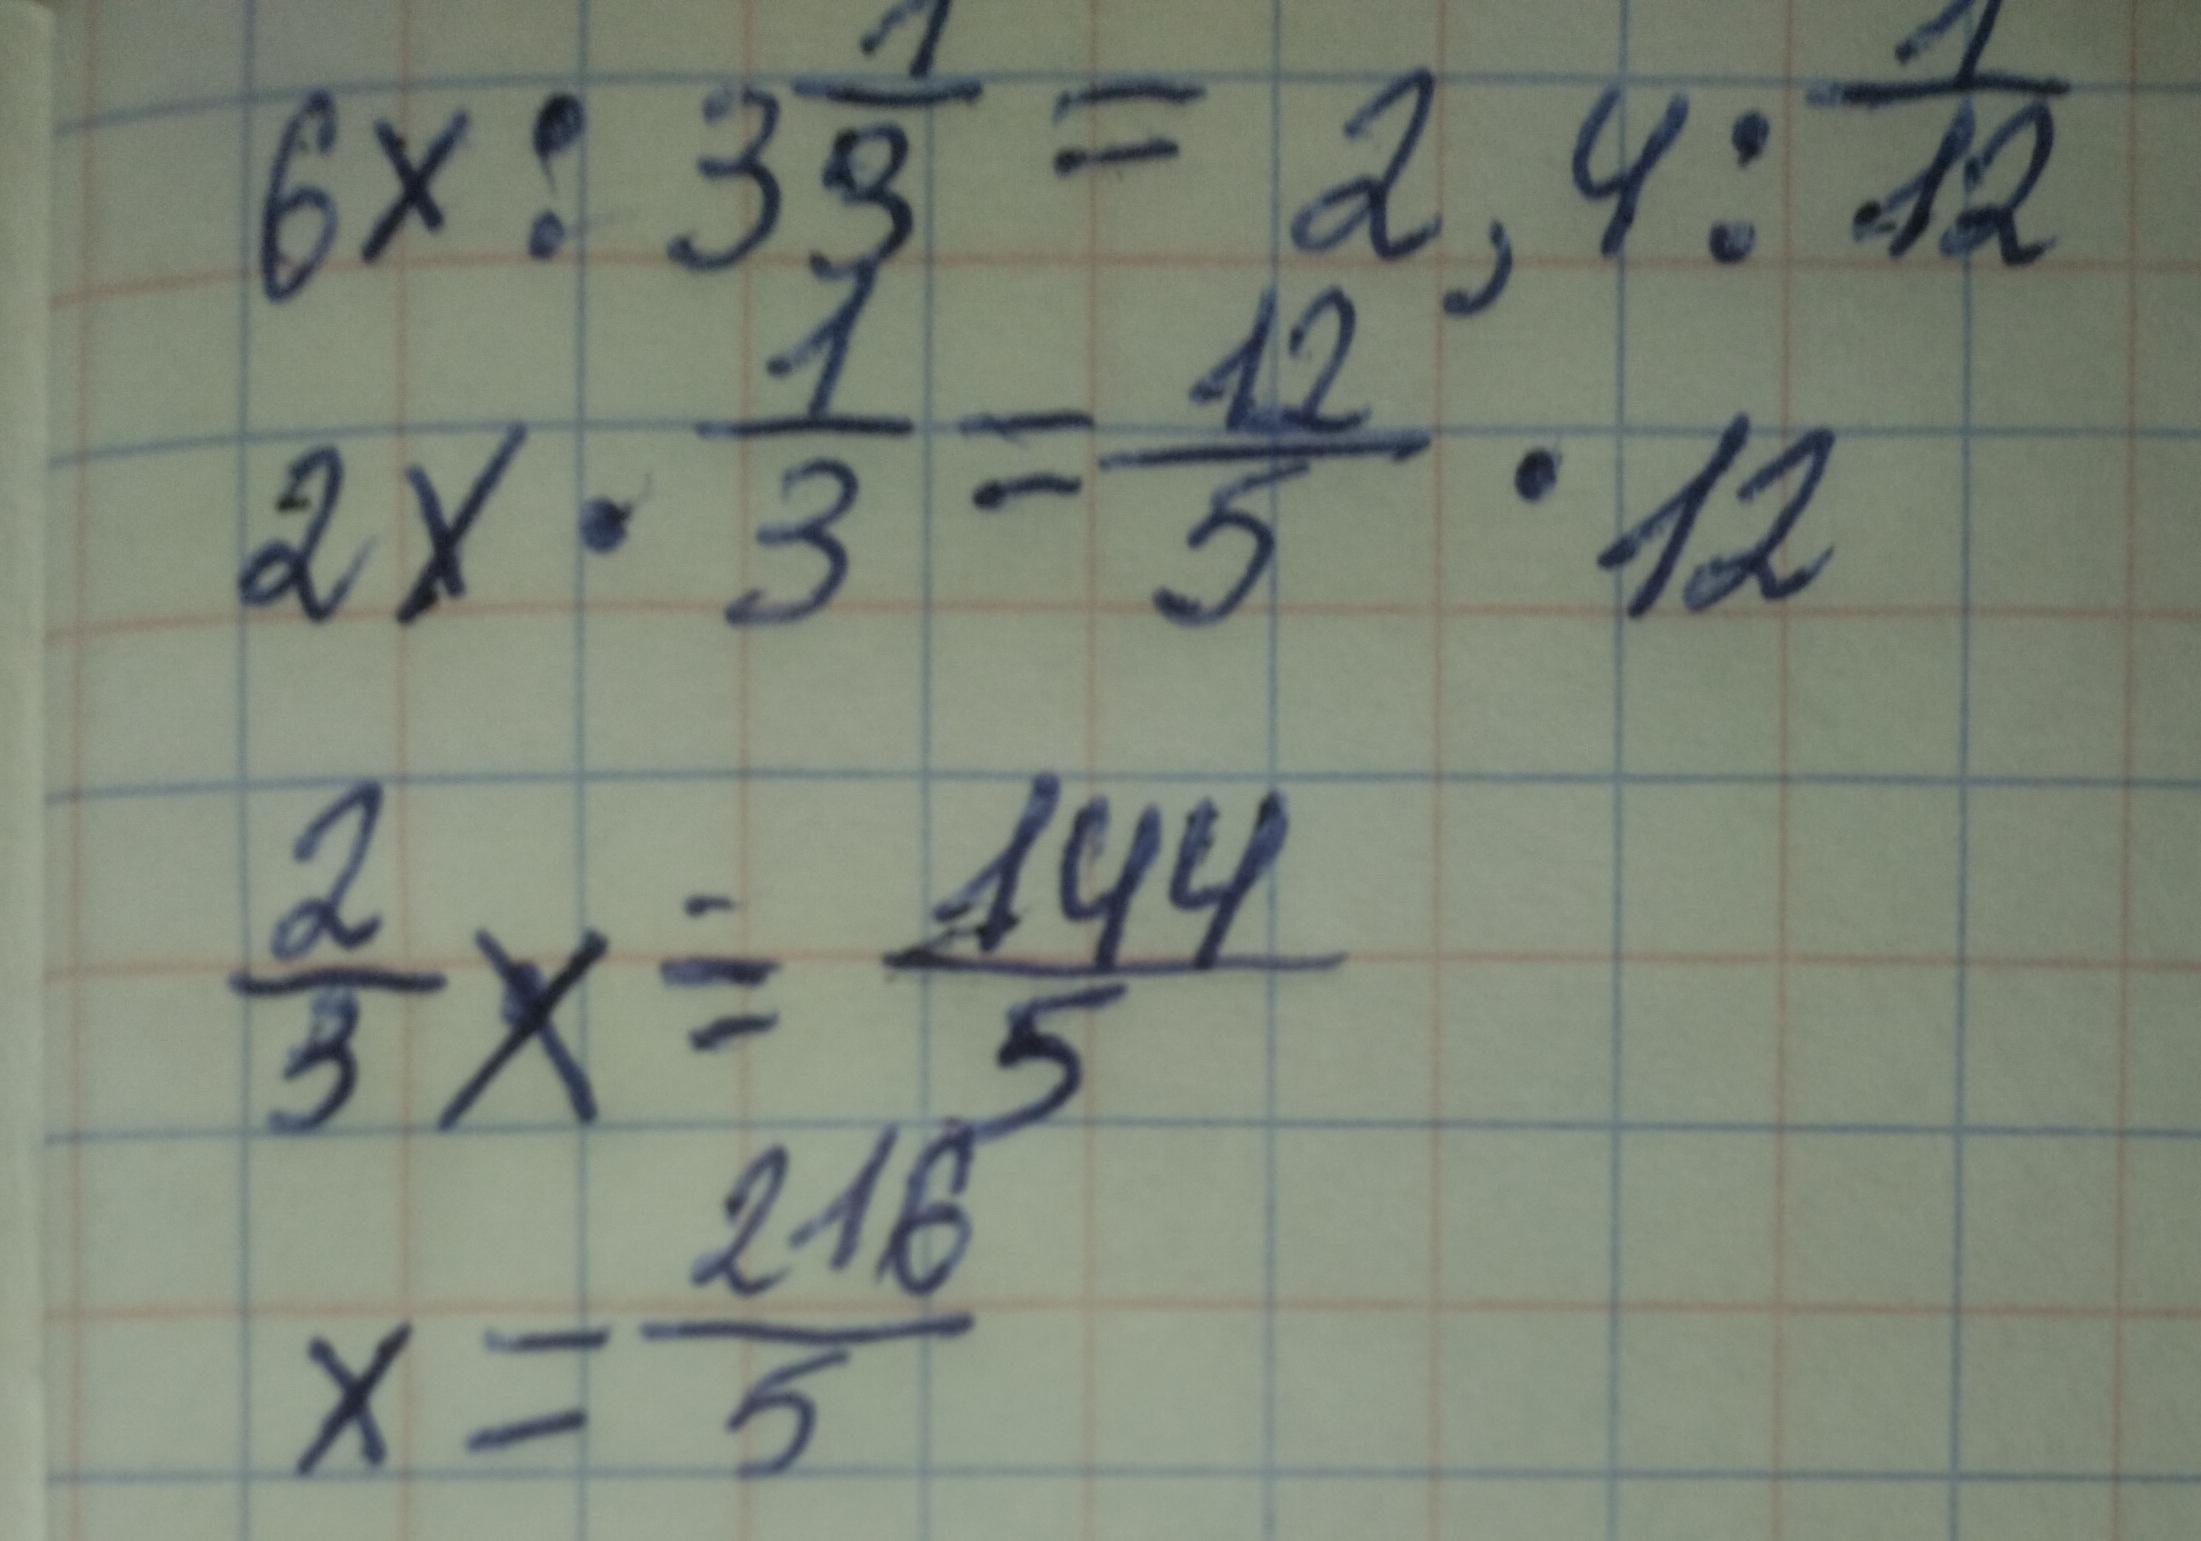 6x : 3 1/3 = 2,4 : 1/12
2x · 1/3 = 12/5 · 12
2/3 x = 144/5
x = 216/5